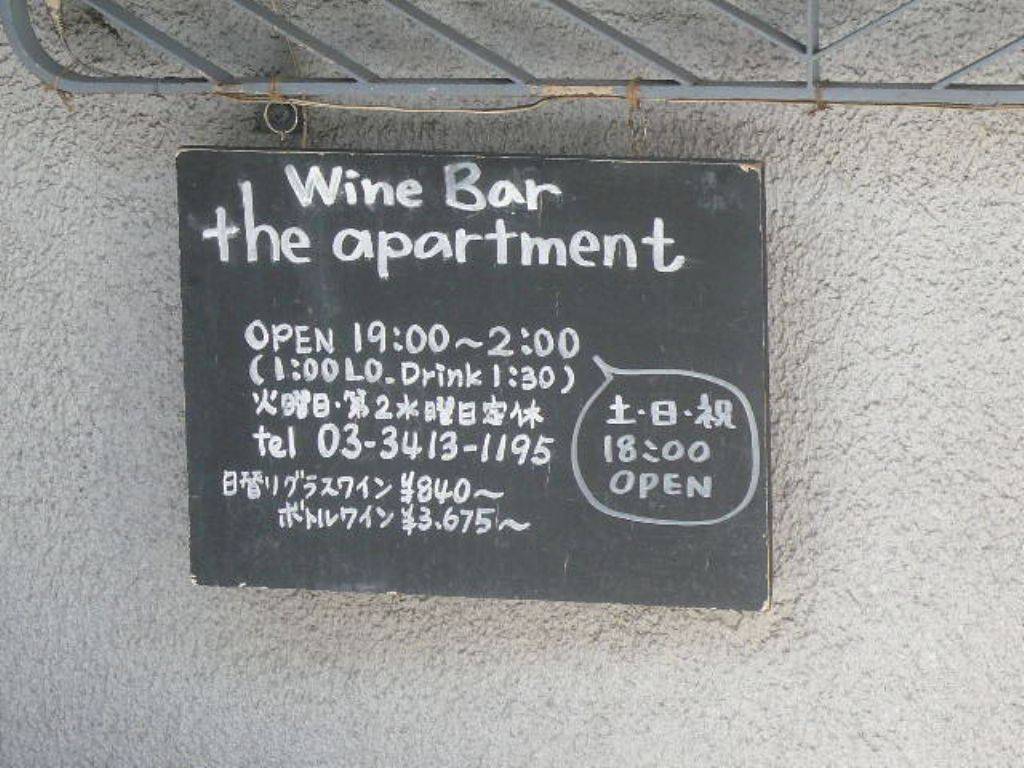 Wine Bar
the apartment
OPEN 19:00～2:00
(1:00 LO. Drink 1:30)
火曜日・第2水曜日定休
tel 03-3413-1195
日替りグラスワイン ¥840～
ボトルワイン ¥3.675～
土・日・祝
18:00
OPEN